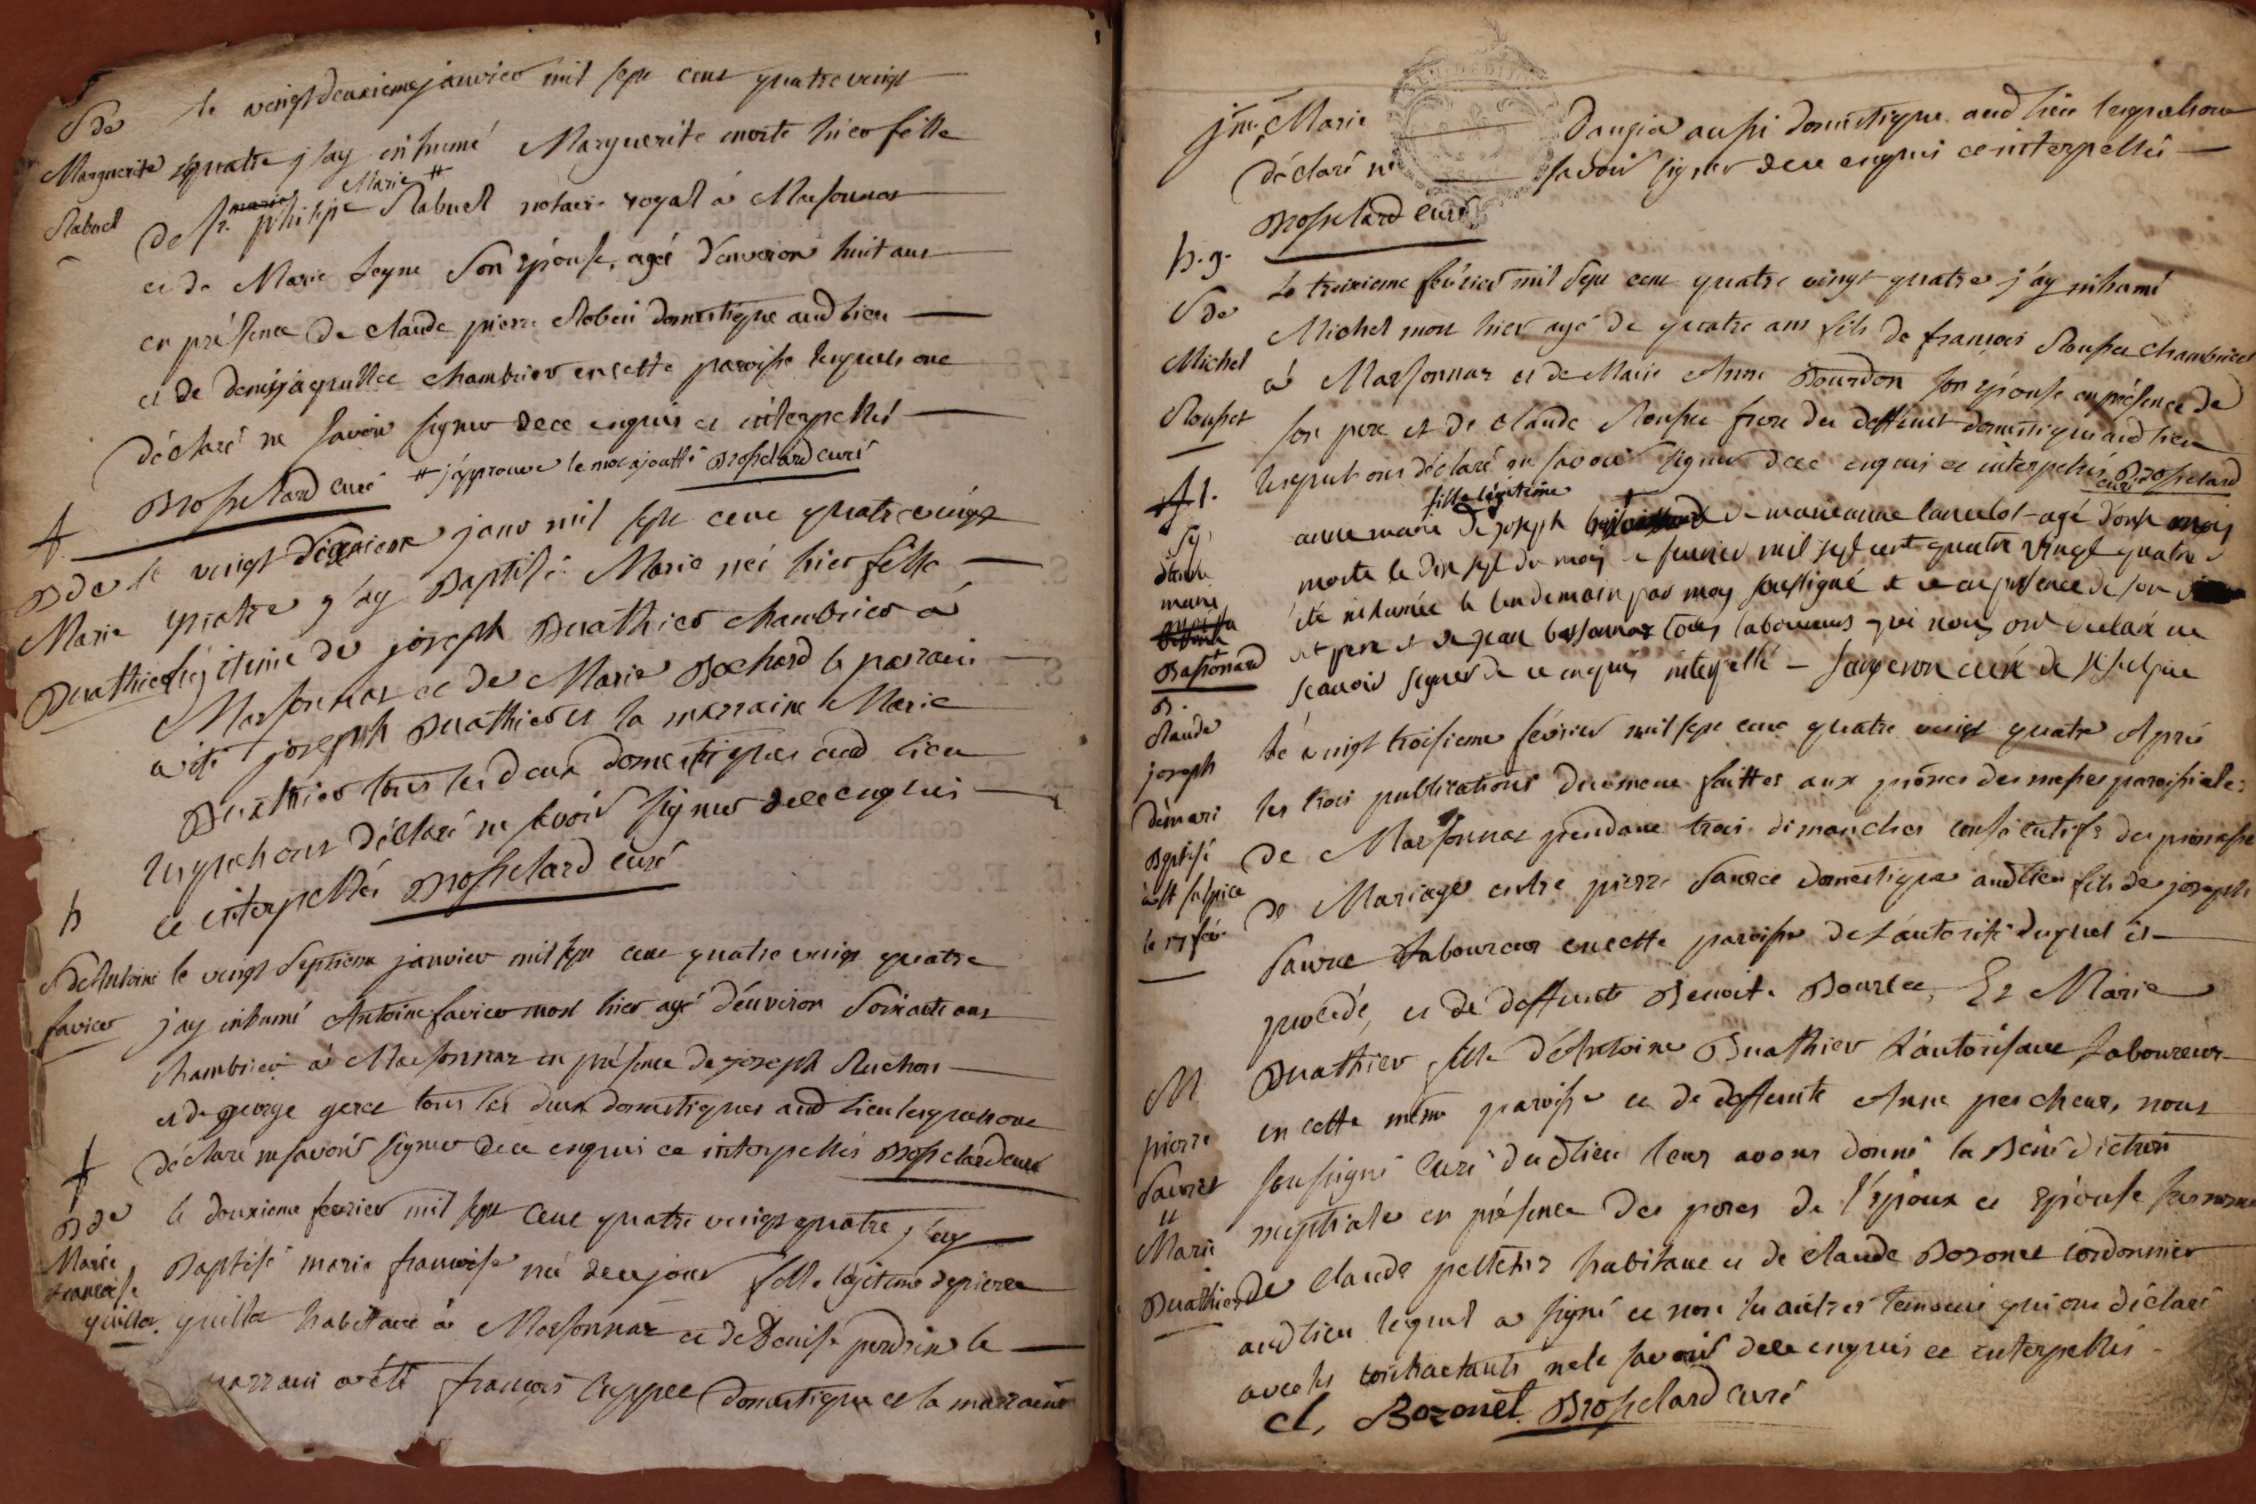 Sde
Marguerite
Rabuel
le vingt deuxieme janvier mil sept cent quatre vingt
quatre j'ay inhumé Marguerite morte hier fille
Marie #
de Sr. philipe Rabuel notaire royal à Marsonnas
et de Marie Seyne son épouse, agée d'environ huit ans
en présence de claude pierre Robin domestique aud lieu
et de denis jaquillet chambrier en cette paroisse lesquels ont
déclaré ne savoir signer de ce enquis et interpellés
Brosselard curé # j'approuve le mot ajoutté Brosselard curé
Bde
Marie
Buathier
le vingt dixieme janv mil sept cent quatre vingt
quatre j'ay Baptisé Marie née hier fille
légitime de joseph Buathier chambrier à
Marsonnas et de Marie Bochard le parrain
a été joseph Buathier et la marraine Marie
Buathier tous les deux domestiques aud lieu
lesquels ont déclaré ne savoir signer de ce enquis
et interpellés Brosselard curé
h
Sde Antoine
favier
le vingt septieme janvier mil sept cent quatre vingt quatre
j'ay inhumé Antoine favier mort hier agé d'environ soixante ans
chambrier à Marsonnas en présence de joseph Ruchon
et de george gerce tous les deux domestiques aud lieu lesquels ont
déclaré ne savoir signer de ce enquis et interpellés Brosselard curé
Bde
Marie
francoise
quillot
le douxieme fevrier mil sept cent quatre vingt quatre j'ay
Baptisé marie francoise née de ce jour fille légitime de pierre
quillot habitant à Marsonnas et de Denise perdrix le
parrain a été françois Cuppet domestique et la marraine
jne. Marie Dangia aussi domestique aud lieu lesquels ont
déclaré ne savoir signer de ce enquis et interpellés
Brosselard curé
h.g.
Sde
Michel
Rousset
Le troixieme février mil sept cent quatre vingt quatre j'ay inhumé
Michel mort hier agé de quatre ans fils de françois Rousset chambrier
à Marsonnas et de Marie Anne Bourdon son épouse en présence de
son pere et de claude Rousset frere du deffunt domestique aud lieu
lesquels ont déclaré ne savoir signer de ce enquis et interpellés Brosselard
curé
Sep
d'anne
marie
Bassonard
fille légitime
anne marie de joseph de marieanne lancelot agé d'onse mois
morte le dix sept du mois de fevrier mil sept cent quatre vingt quatre a
été inhumée le lendemain par moy soussigné et ce en présence de son
dt pere et de jean bassonnar tous laboureurs qui nous ont déclaré ne
scavoir signer de ce enquis interpellé – curé de St Sulpice
B.
Claude
joseph
démari
Baptisé
à St Sulpice
le 17 fév.
M
pierre
Sauret
et
Marie
Buathier
Le vingt troisieme février mil sept cent quatre vingt quatre Apres
les trois publications duement faittes aux prônes des messes paroissiales
de Marsonnas pendant trois dimanches consécutifs des promesses
de Mariage entre pierre Sauret domestique aud lieu fils de joseph
Sauret Laboureur en cette paroisse de l'autorité duquel il
procéde, et de deffunte Benoite Bourcet, Et Marie
Buathier fille d'Antoine Buathier l'autorisant Laboureur
en cette même paroisse et de deffunte Anne percheur, nous
soussigné curé dud lieu leur avons donné la Bénédiction
nuptiale en présence des peres de l'époux et épouse
de claude pelletier habitant et de claude Bozonet cordonnier
aud lieu lequel a signé et non les autres témoins qui ont déclaré
avec les contractants ne le savoir de ce enquis et interpellés.
cl, Bozonet Brosselard curé